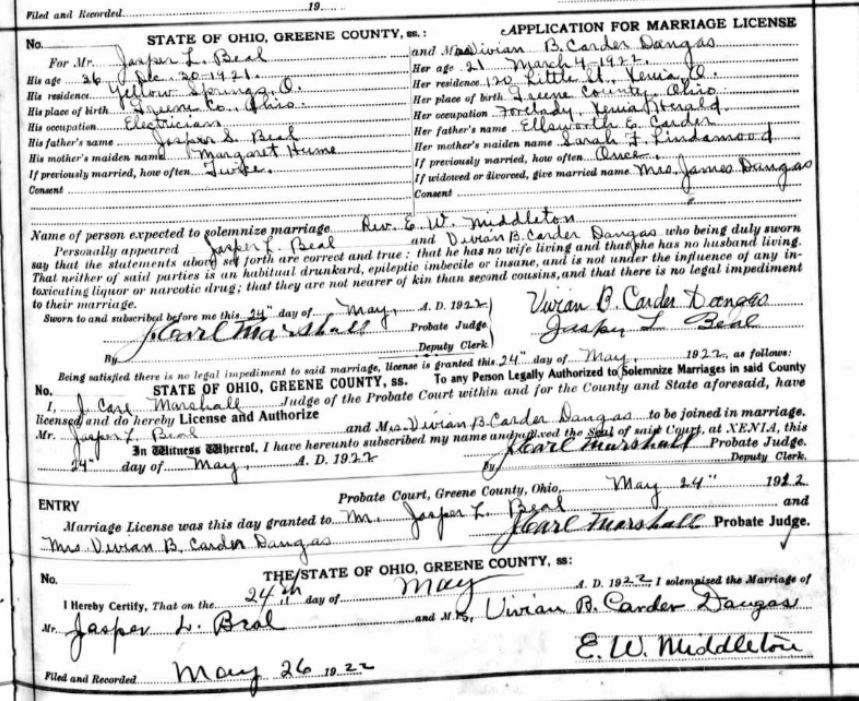 Filed and Recorded 19
No. STATE OF OHIO, GREENE COUNTY, ss.:
For Mr. Jasper L. Beal
His age 26 Dec. 20-1921.
His residence Yellow Springs, O.
His place of birth Greene Co., Ohio.
His occupation Electrician
His father's name Jasper S. Beal
His mother's maiden name Margaret Hume
If previously married, how often Twice.
Consent
APPLICATION FOR MARRIAGE LICENSE
and Mrs Vivian B. Carder Dangas
Her age 21 March 4-1922.
Her residence 120 Little St., Xenia, O.
Her place of birth Greene County, Ohio.
Her occupation Forelady, Xenia
Her father's name Ellsworth E. Carder
Her mother's maiden name Sarah F. Lindamood
If previously married, how often Once.
If widowed or divorced, give married name Mrs. James Dangas
Consent
Name of person expected to solemnize marriage Rev. E. W. Middleton
Personally appeared Jasper L. Beal and Vivian B. Carder Dangas who being duly sworn
say that the statements above set forth are correct and true: that he has no wife living and that she has no husband living.
That neither of said parties is an habitual drunkard, epileptic imbecile or insane, and is not under the influence of any in-
toxicating liquor or narcotic drug; that they are not nearer of kin than second cousins, and that there is no legal impediment
to their marriage.
Sworn to and subscribed before me this 24" day of May, A. D. 1922
J. Carl Marshall Probate Judge
By Deputy Clerk
Vivian B. Carder Dangas
Jasper L Beal
Being satisfied there is no legal impediment to said marriage, license is granted this 24" day of May, 1922, as follows:
No. STATE OF OHIO, GREENE COUNTY, ss. To any Person Legally Authorized to Solemnize Marriages in said County
I, J. Carl Marshall Judge of the Probate Court within and for the County and State aforesaid, have
licensed and do hereby License and Authorize
Mr. Jasper L. Beal and Mrs. Vivian B. Carder Dangas to be joined in marriage.
In Witness Whereof, I have hereunto subscribed my name and affixed the Seal of said Court, at XENIA, this
24" day of May, A. D. 1922 J. Carl Marshall Probate Judge.
By Deputy Clerk.
Probate Court, Greene County, Ohio, May 24" 1922
ENTRY
Marriage License was this day granted to Mr. Jasper L. Beal and
Mrs. Vivian B. Carder Dangas J. Carl Marshall Probate Judge.
No. THE STATE OF OHIO, GREENE COUNTY, ss:
I Hereby Certify, That on the 24th day of May A. D. 1922 I solemnized the Marriage of
Mr. Jasper L. Beal and Mrs, Vivian B. Carder Dangas
E. W. Middleton
Filed and Recorded May 26 1922